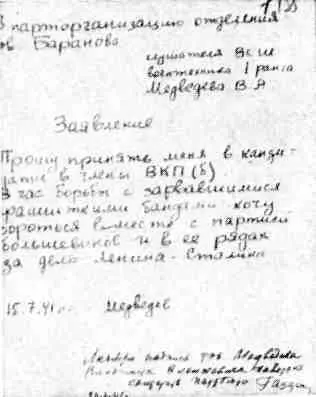 В парторганизацию отделения
тов Баранова
слушателя ВСШ
воентехника 1 ранга
Медведева В.А
Заявление
Прошу принять меня в канди-
даты в члены ВКП(б)
В час борьбы с зарвавшимися
фашистскими бандами хочу
бороться вместе с партией
большевиков и в ее рядах
за дело Ленина-Сталина
15.7.41 Медведев
подпись тов Медведева